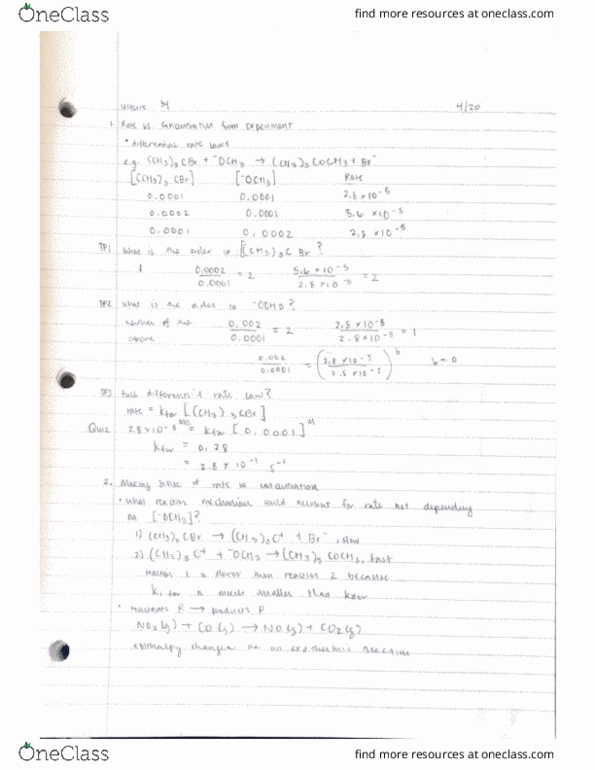 OneClass
find more resources at oneclass.com
Lecture 4/20
1. Rate vs. concentration from experiment
• differential rate laws
e.g. (CH3)3 CBr + ⁻OCH3 → (CH3)3 COCH3 + Br⁻
[(CH3)3 CBr] [⁻OCH3] Rate
0.0001 0.0001 2.8 × 10⁻⁵
0.0002 0.0001 5.6 × 10⁻⁵
0.0001 0.0002 2.8 × 10⁻⁵
TP1 What is the order in [(CH3)3 C Br]?
1 0.0002/0.0001 = 2 5.6 × 10⁻⁵/2.8 × 10⁻⁵ = 2
TP2 What is the order in ⁻OCH3?
neither of the 0.002/0.0001 = 2 2.8 × 10⁻⁵/2.8 × 10⁻⁵ = 1
above
0.002/0.0001 = (2.8 × 10⁻⁵/ × 10⁻⁵)ᵇ b = 0
TP3 Full differential rate law?
rate = kfw [(CH3)3CBr]
Quiz 2.8 × 10⁻⁵ = kfw [0.0001]ᴹ
kfw = 0.28
= 2.8 × 10⁻¹ s⁻¹
2. Making sense of rate vs concentration
• What reaction mechanism could account for rate not depending
on [⁻OCH3]?
1) (CH3)3 CBr → (CH3)3C⁺ + Br⁻, slow
2) (CH3)3 C⁺ + ⁻OCH3 → (CH3)3 COCH3, fast
reaction 1 is slower than reaction 2 because
is much smaller than
• reactants R → products P
NO2(g) + CO(g) → NO(g) + CO2(g)
enthalpy changes an exothermic reaction
OneClass
find more resources at oneclass.com